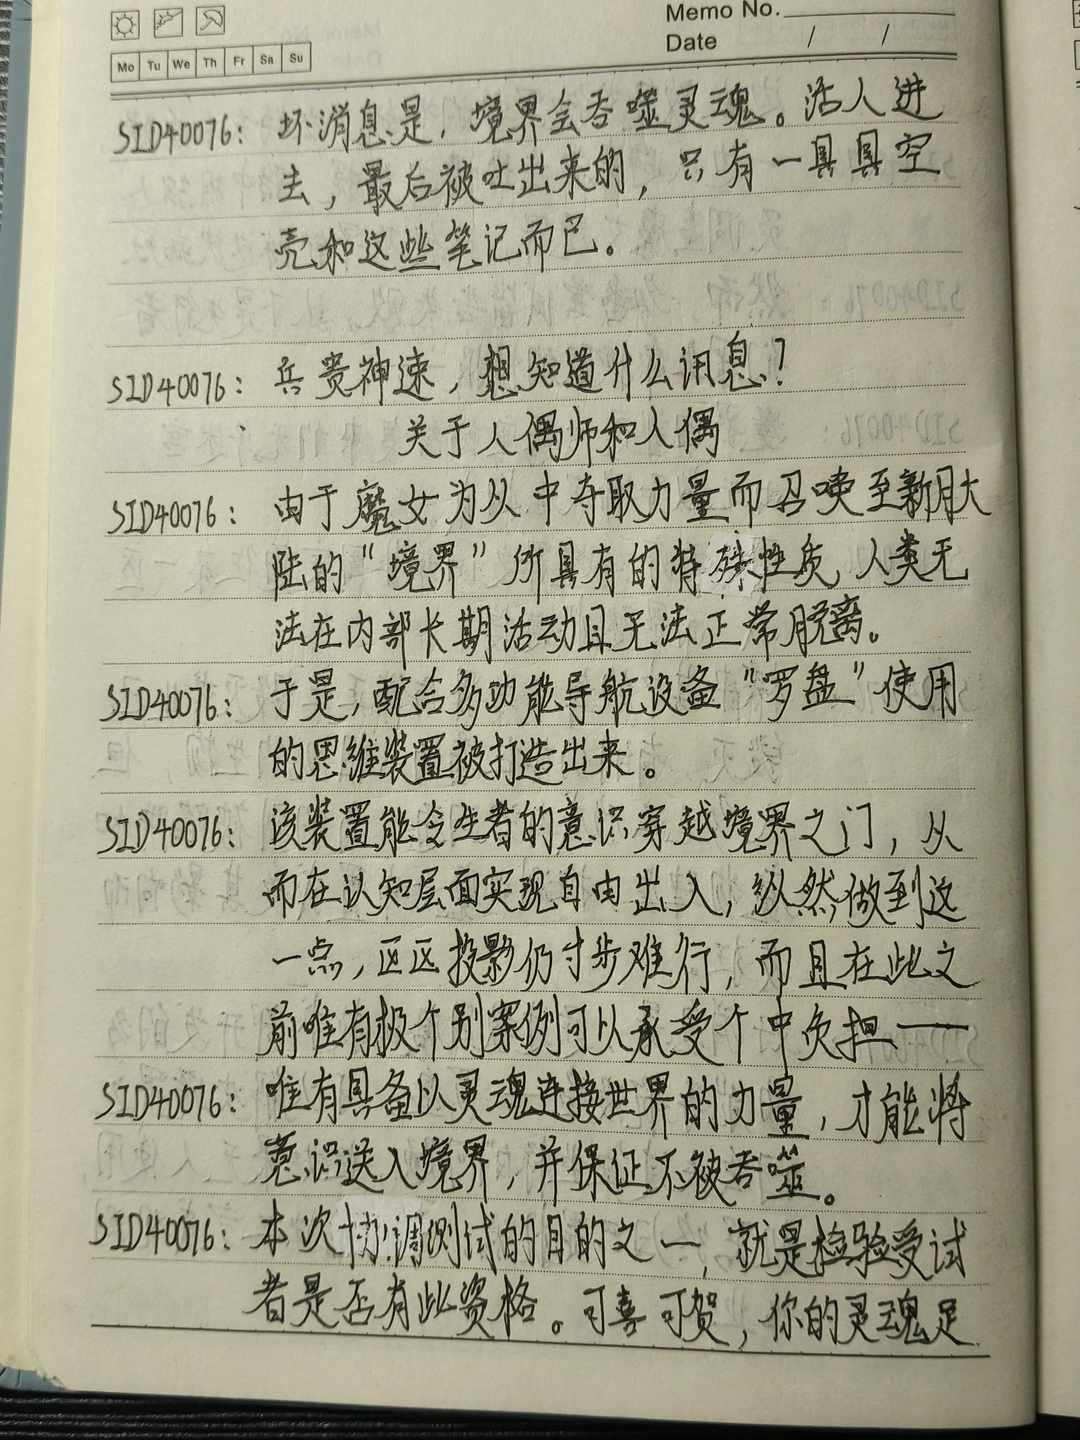 Memo No.
Date / /
Mo Tu We Th Fr Sa Su
SID40076: 坏消息是，境界会吞噬灵魂。活人进
去，最后被吐出来的，只有一具具空
壳和这些笔记而已。
SID40076: 兵贵神速，想知道什么讯息？
关于人偶师和人偶
SID40076: 由于魔女为从中夺取力量而召唤至新月大
陆的“境界”所具有的特殊性质，人类无
法在内部长期活动且无法正常脱离。
SID40076: 于是，配合多功能导航设备“罗盘”使用
的思维装置被打造出来。
SID40076: 该装置能令生者的意识穿越境界之门，从
而在认知层面实现自由出入，纵然做到这
一点，区区投影仍寸步难行，而且在此之
前唯有极个别案例可以承受个中负担——
SID40076: 唯有具备以灵魂连接世界的力量，才能将
意识送入境界，并保证不被吞噬。
SID40076: 本次协调测试的目的之一，就是检验受试
者是否有此资格。可喜可贺，你的灵魂足